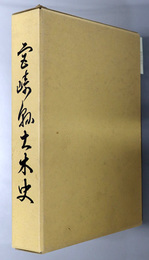 宮崎縣土木史